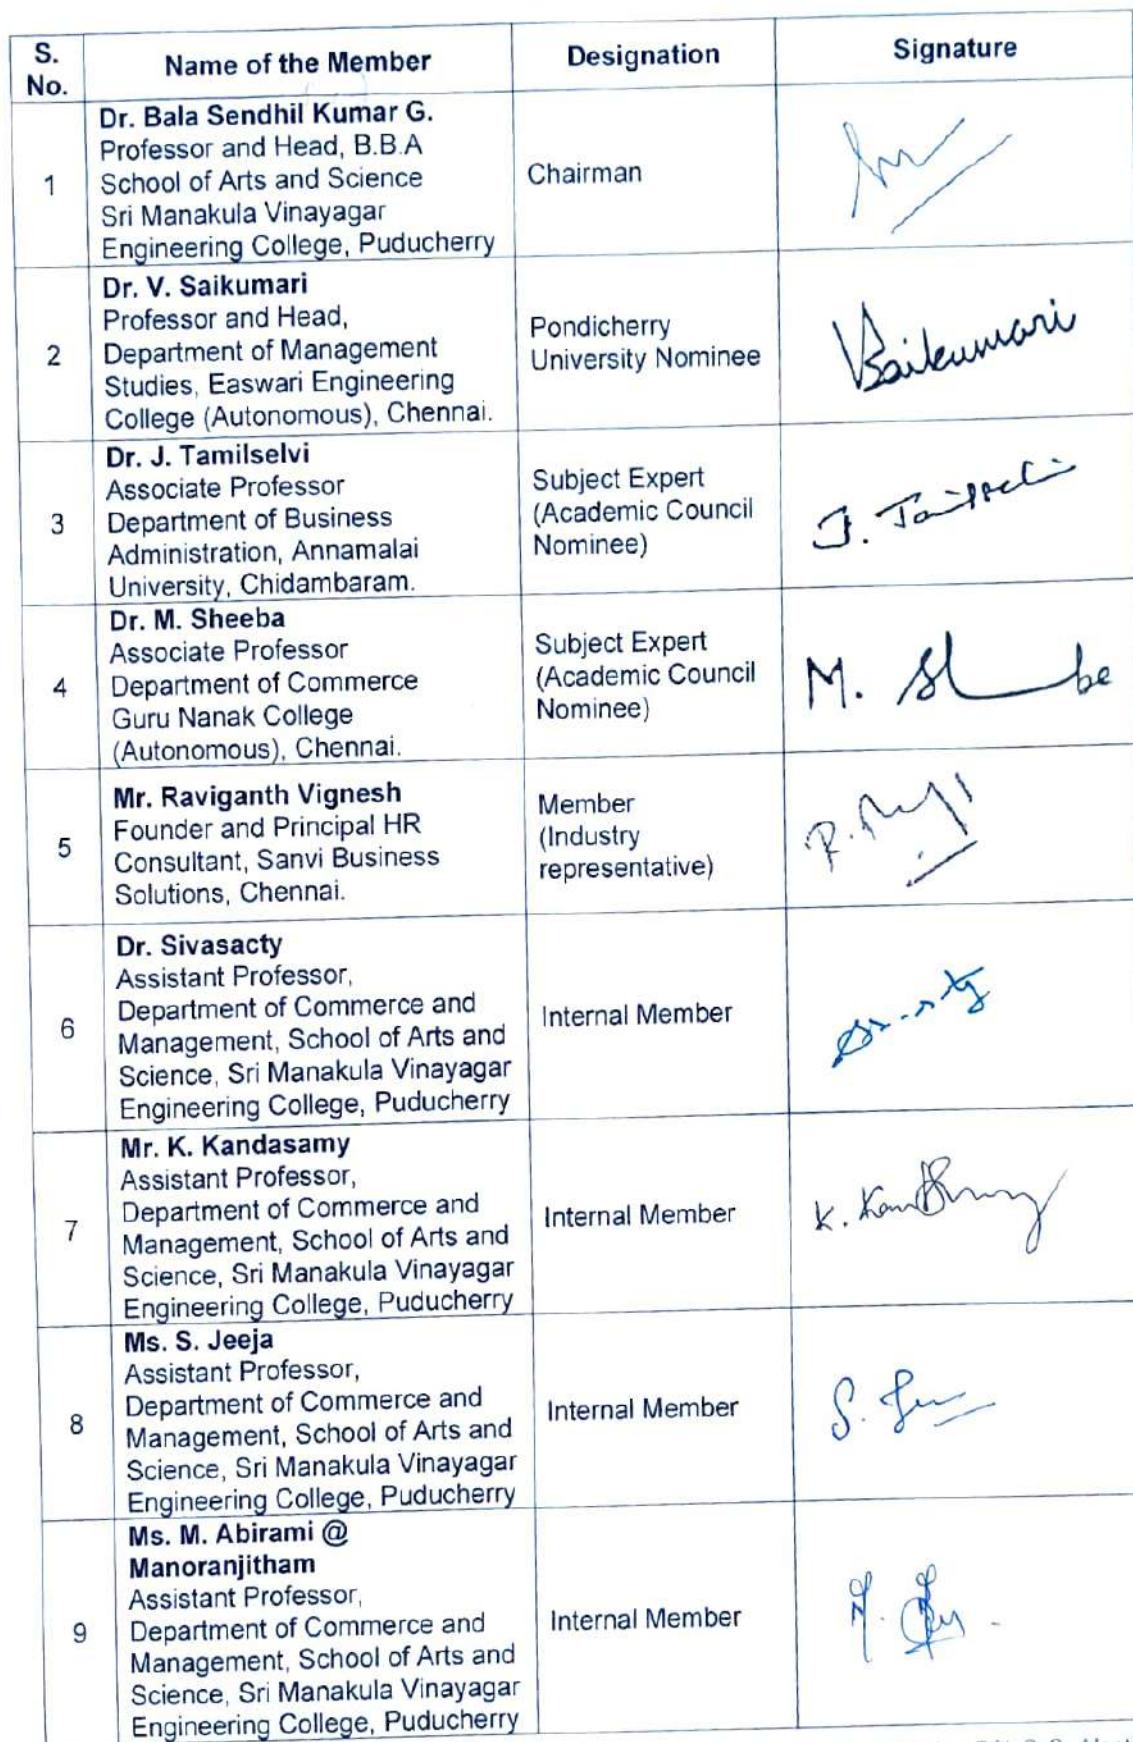 S. No.
Name of the Member
Designation
Signature
1
Dr. Bala Sendhil Kumar G.
Professor and Head, B.B.A
School of Arts and Science
Sri Manakula Vinayagar
Engineering College, Puducherry
Chairman
2
Dr. V. Saikumari
Professor and Head,
Department of Management
Studies, Easwari Engineering
College (Autonomous), Chennai.
Pondicherry
University Nominee
VSaikumari
3
Dr. J. Tamilselvi
Associate Professor
Department of Business
Administration, Annamalai
University, Chidambaram.
Subject Expert
(Academic Council
Nominee)
J.
4
Dr. M. Sheeba
Associate Professor
Department of Commerce
Guru Nanak College
(Autonomous), Chennai.
Subject Expert
(Academic Council
Nominee)
M.
5
Mr. Raviganth Vignesh
Founder and Principal HR
Consultant, Sanvi Business
Solutions, Chennai.
Member
(Industry
representative)
R.
6
Dr. Sivasacty
Assistant Professor,
Department of Commerce and
Management, School of Arts and
Science, Sri Manakula Vinayagar
Engineering College, Puducherry
Internal Member
7
Mr. K. Kandasamy
Assistant Professor,
Department of Commerce and
Management, School of Arts and
Science, Sri Manakula Vinayagar
Engineering College, Puducherry
Internal Member
K.
8
Ms. S. Jeeja
Assistant Professor,
Department of Commerce and
Management, School of Arts and
Science, Sri Manakula Vinayagar
Engineering College, Puducherry
Internal Member
S.
9
Ms. M. Abirami @
Manoranjitham
Assistant Professor,
Department of Commerce and
Management, School of Arts and
Science, Sri Manakula Vinayagar
Engineering College, Puducherry
Internal Member